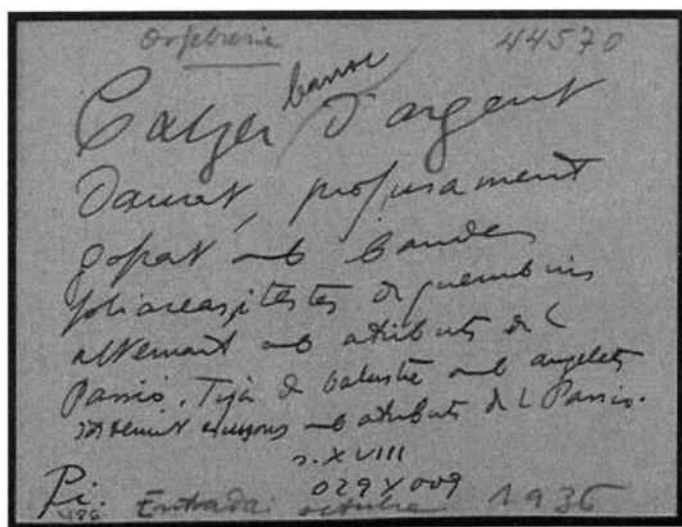 Orfebreria 44570
barroc
Calzer d'argent
Daurat, profusament
gofrat amb bandes
foliaceas, testes de querubins
alternant amb atributs de l
Passió. Tija de balustre amb angelets
sostenint escussons amb atributs de l Passio.
s. XVIII
029 X 009
Pi. Entrada: octubre 1936
496